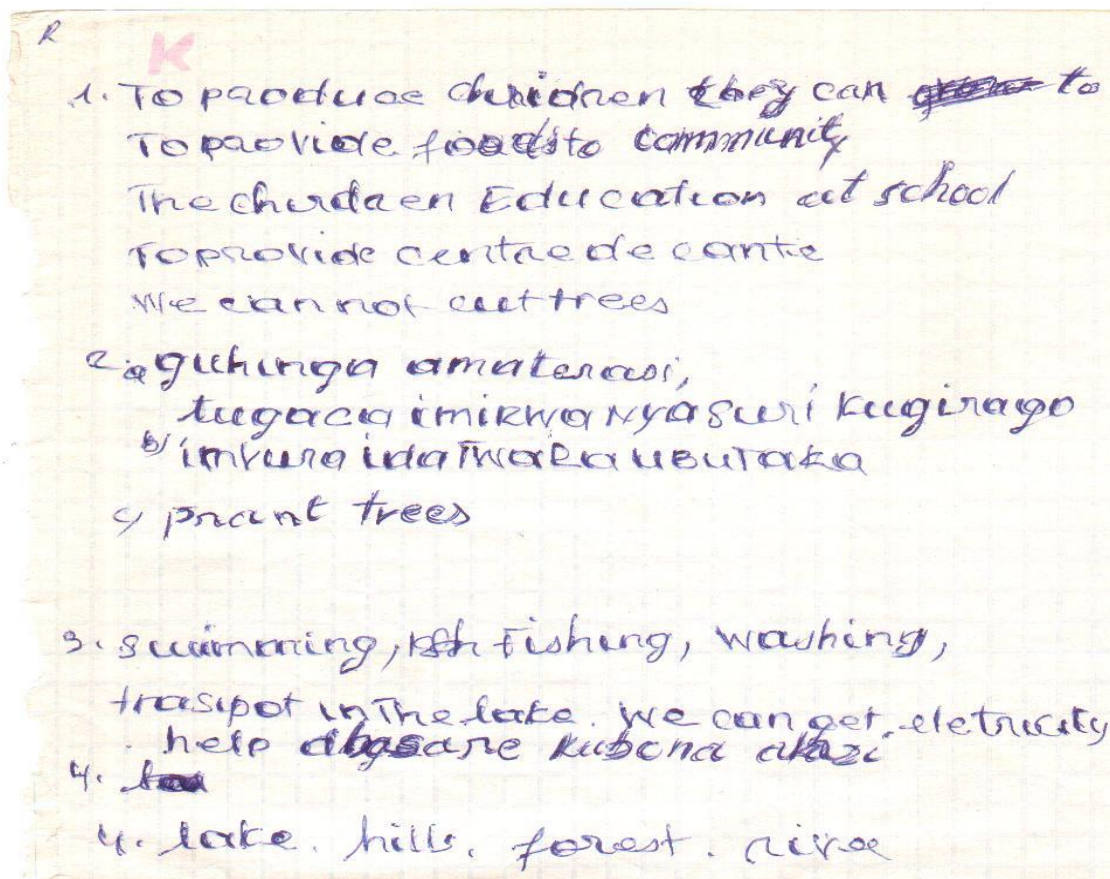 R
K
1. To paoduce chridren they can to
To paovide foods to community
The churdaen Education at school
To provide centre de cante
We can not cut trees
2. a guhinga amaterasi,
tugaca imirwanyasuri kugirago
b) imvura idatwara ubutaka
c) prant trees
3. swimming, Fishing, washing,
trasipot in The lake. we can get eletricity
help abasare kubona akazi
4.
4. lake. hills. forest. rive